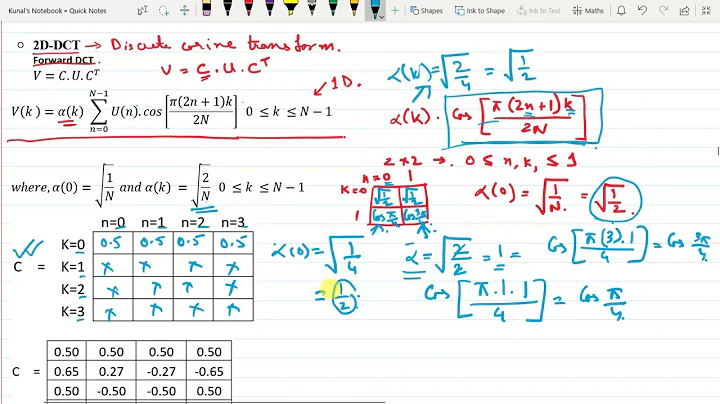 Kunal's Notebook » Quick Notes
Shapes
Ink to Shape
Ink to Text
Maths
2D-DCT → Discrete cosine transform.
Forward DCT
V = C.U.C^T
V = C.U.C^T
1D.
V(k) = α(k) ∑_{n=0}^{N-1} U(n).cos[π(2n+1)k / 2N] 0 ≤ k ≤ N − 1
α(k) = √(2/4) = √(1/2)
α(k) · cos[π(2n+1)k / 2N]
2*2 → . 0 ≤ n, k, ≤ 1
where, α(0) = √(1/N) and α(k) = √(2/N) 0 ≤ k ≤ N − 1
n=0 1
k=0 √(1/2) √(1/2)
1 cos π/4 cos 3π/4
α(0) = √(1/N) = √(1/2).
n=0 n=1 n=2 n=3
K=0 0.5 0.5 0.5 0.5
C = K=1 x x x x
K=2 x x x x
K=3 x x x x
α(0) = √(1/4)
= 1/2
α = √(2/2) = 1 =
cos[π(3).1 / 4] = cos 3π/4
cos[π.1.1 / 4] = cos π/4.
0.50 0.50 0.50 0.50
C = 0.65 0.27 -0.27 -0.65
0.50 -0.50 -0.50 0.50